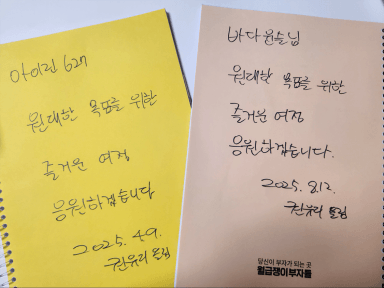 아이린 627
원대한 목표를 위한
즐거운 여정
응원하겠습니다
2025. 4.9.
권유리 드림
바다윤슬님
원대한 목표를 위한
즐거운 여정
응원하겠습니다.
2025. 9.12.
권유리 드림
당신이 부자가 되는 곳
월급쟁이부자들